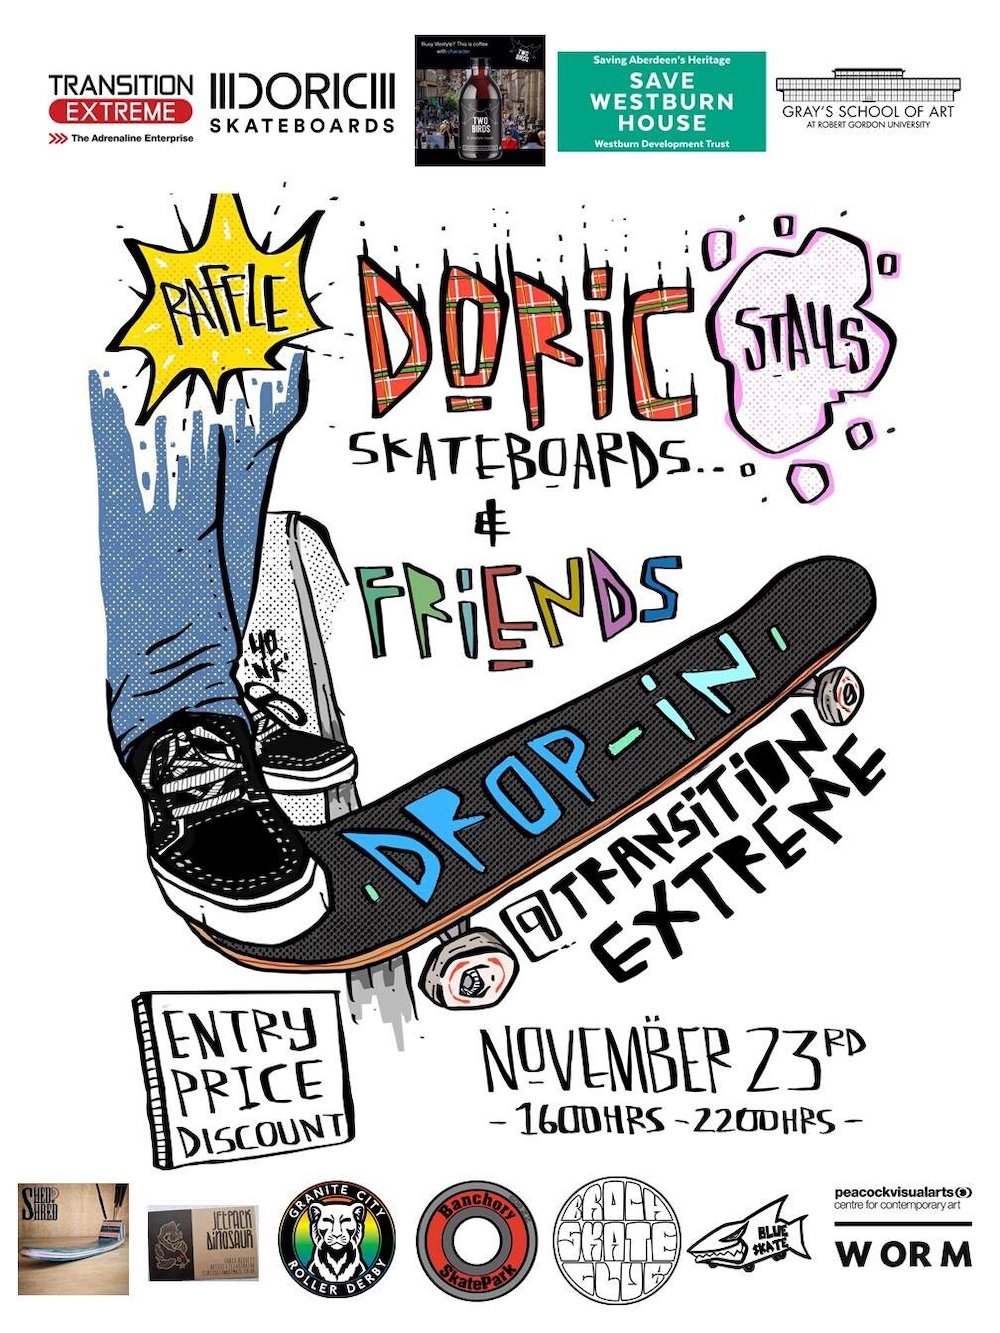 TRANSITION
EXTREME
The Adrenaline Enterprise
DORIC
SKATEBOARDS
Busy lifestyle? This is coffee
with character
TWO
BIRDS
TWO
BIRDS
Saving Aberdeen's Heritage
SAVE
WESTBURN
HOUSE
Westburn Development Trust
GRAY'S SCHOOL OF ART
AT ROBERT GORDON UNIVERSITY
RAFFLE
DORiC
STALLS
SKATEBOARDS...
&
FRiENDS
YO
'NK'
DROP-iN
@TRANSiTiON
EXTREME
ENTRY
PRICE
DISCOUNT
NOVEMBER 23RD
- 1600HRS - 2200HRS -
SHED
SHRED
JETPACK
DINOSAUR
GRANITE CITY
ROLLER DERBY
Banchory
SkatePark
BROCH
SKATE
CLUB
BLUE
SKATE
peacockvisualarts
centre for contemporary art
WORM